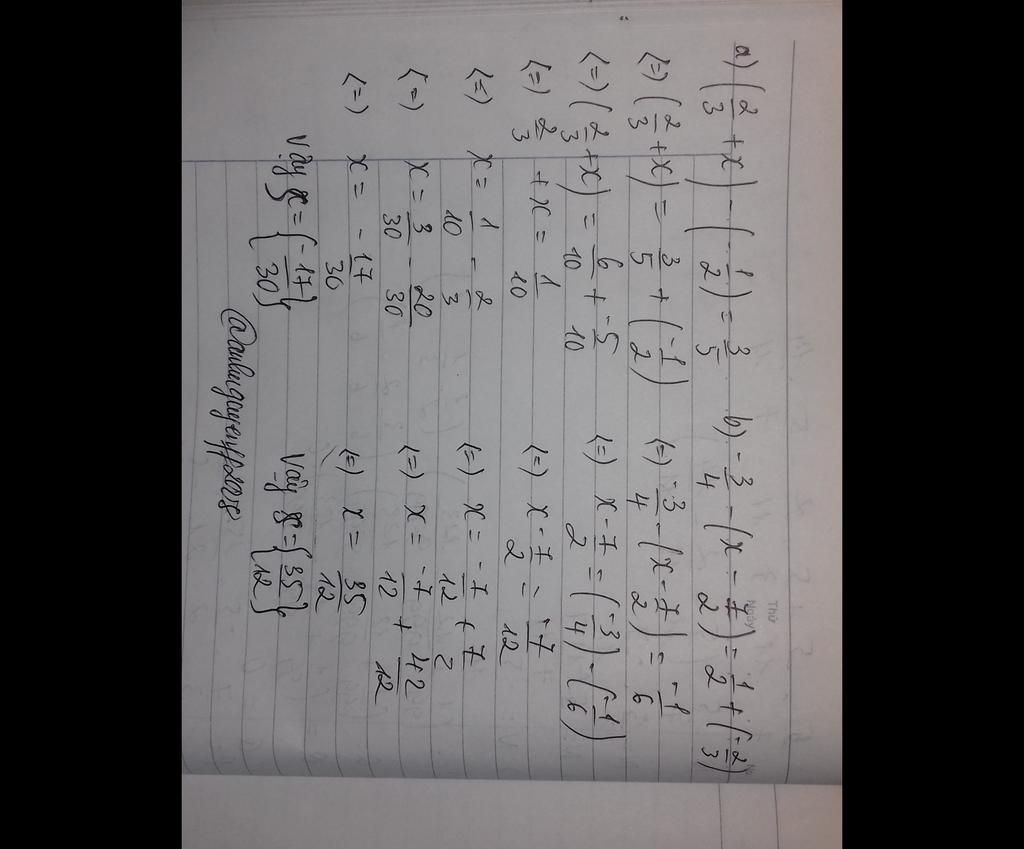 a) (2/3 + x) - (-1/2) = 3/5
(=) (2/3 + x) = 3/5 + (-1/2)
(=) (2/3 + x) = 6/10 + -5/10
(=) 2/3 + x = 1/10
(=) x = 1/10 - 2/3
(=) x = 3/30 - 20/30
(=) x = -17/30
Vậy x = {-17/30}
b) -3/4 - (x - 7/2) = 1/2 + (-2/3)
(=) -3/4 - (x - 7/2) = -1/6
(=) x - 7/2 = (-3/4) - (-1/6)
(=) x - 7/2 = -7/12
(=) x = -7/12 + 7/2
(=) x = -7/12 + 42/12
(=) x = 35/12
Vậy x = {35/12}
Thứ
Ngày
No.